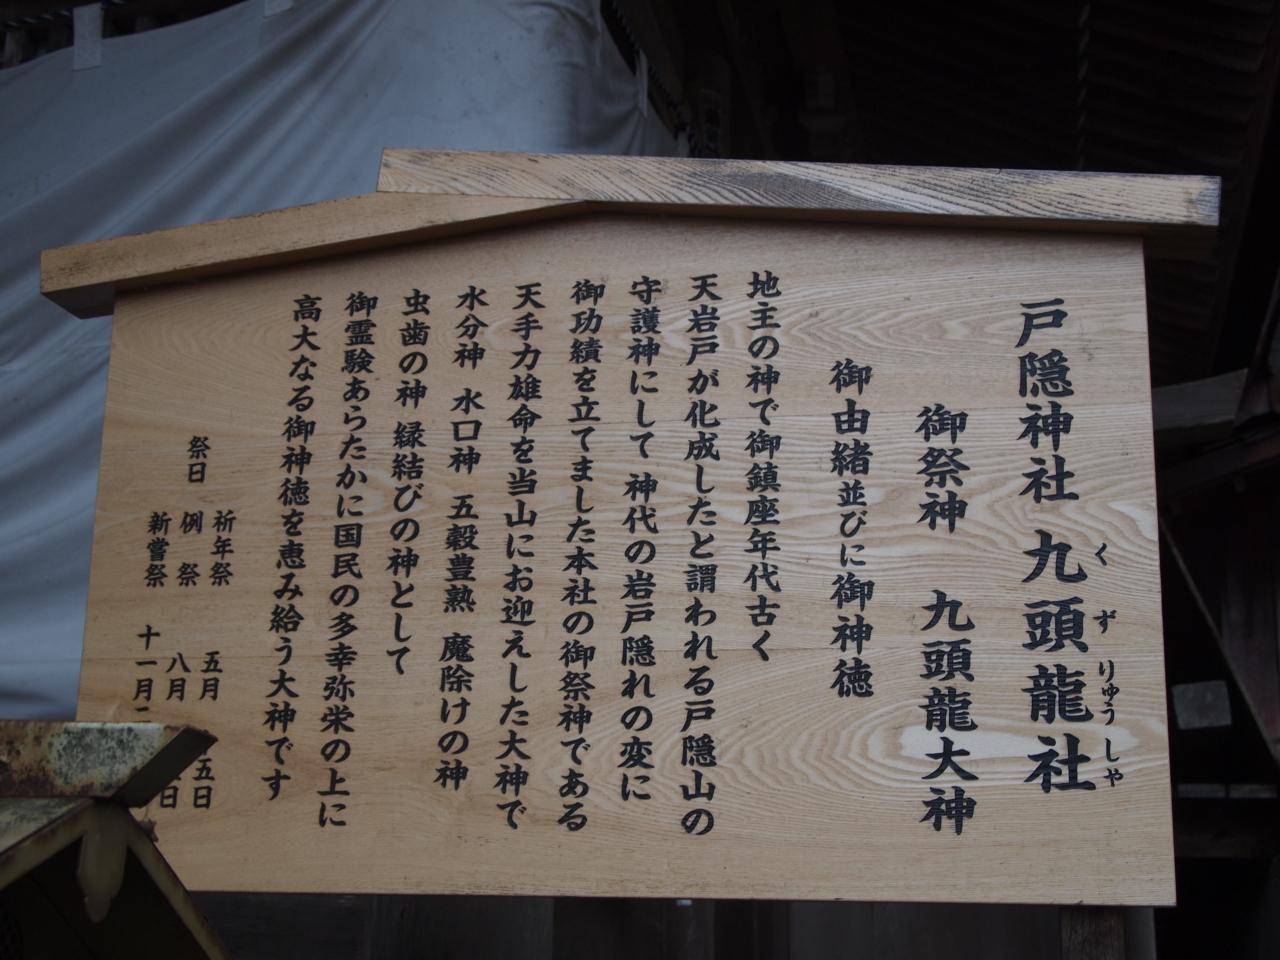 戸隠神社 九頭龍社
くずりゅうしゃ
御祭神 九頭龍大神
御由緒並びに御神徳
地主の神で御鎮座年代古く
天岩戸が化成したと謂われる戸隠山の
守護神にして 神代の岩戸隠れの変に
御功績を立てました本社の御祭神である
天手力雄命を当山にお迎えした大神で
水分神 水口神 五穀豊熟 魔除けの神
虫歯の神 縁結びの神として
御霊験あらたかに国民の多幸弥栄の上に
高大なる御神徳を恵み給う大神です
祭日
祈年祭 五月 五日
例祭 八月 日
新嘗祭 十一月二